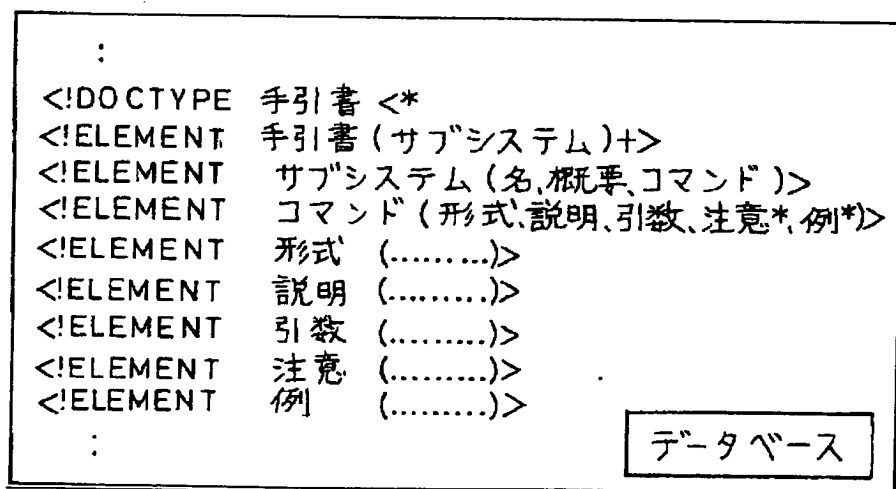 :
<!DOCTYPE 手引書 <*
<!ELEMENT 手引書 (サブシステム)+>
<!ELEMENT サブシステム (名、概要、コマンド)>
<!ELEMENT コマンド (形式、説明、引数、注意*、例*)>
<!ELEMENT 形式 (.........)>
<!ELEMENT 説明 (.........)>
<!ELEMENT 引数 (.........)>
<!ELEMENT 注意 (.........)>
<!ELEMENT 例 (.........)>
:
データベース